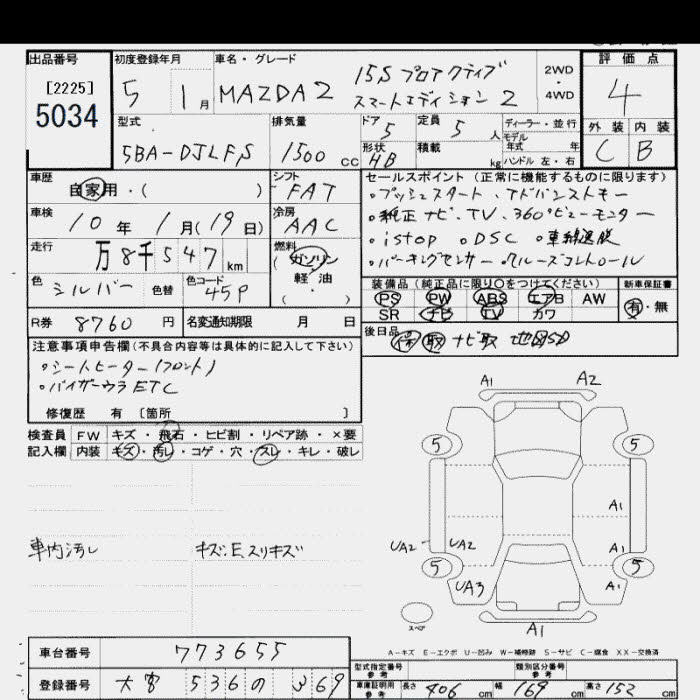 出品番号 初度登録年月 車名・グレード 評価点
[2225]
5034
5 1月 MAZDA2 15S プロアクティブ 2WD・4WD
スマートエディション2
4
型式 排気量 ドア 定員 ディーラー・並行
5 5人 モデル年式 年
外装 内装
5BA-DJLFS 1500cc 形状 積載 kg ハンドル 左・右
HB
C B
車歴 シフト セールスポイント(正常に機能するものに限ります)
自家用・( ) FAT
・プッシュスタート・アドバンストキー
車検 冷房
10年 1月(19日) AAC
・純正ナビ・TV・360°ビューモニター
走行 燃料
万8千547km (ガソリン 軽・油 ・ )
・istop ・DSC ・車線逸脱
・パーキングセンサー・クルーズコントロール
色 シルバー 色替 色コード 45P
装備品(純正品に限り〇をつけてください) 新車保証書
PS PW ABS エアB AW 有・無
SR ナビ TV カワ
R券 8760円 名変通知期限 月 日
後日品 保 取 ナビ取 地図SD
注意事項申告欄(不具合内容等は具体的に記入して下さい)
・シートヒーター(フロント)
・バイザーウラETC
修復歴 有 [箇所 ]
検査員 FW キズ・飛石・ヒビ割・リペア跡・×要
記入欄 内装 キズ・汚レ・コゲ・穴・スレ・キレ・破レ
A1 A2
5 5
A1
UA2 UA2 A1
5 5
UA3 A1
A1
車内汚レ キズ・E.スリキズ
スペア
A-キズ E-エクボ U-凹み W-補修跡 S-サビ C-腐食 XX-交換済
車台番号 773655
登録番号 大宮 536 の 369
型式指定番号 参考 類別区分番号 参考
車庫証明用 参考 長さ 406cm 幅 169cm 高さ 152cm